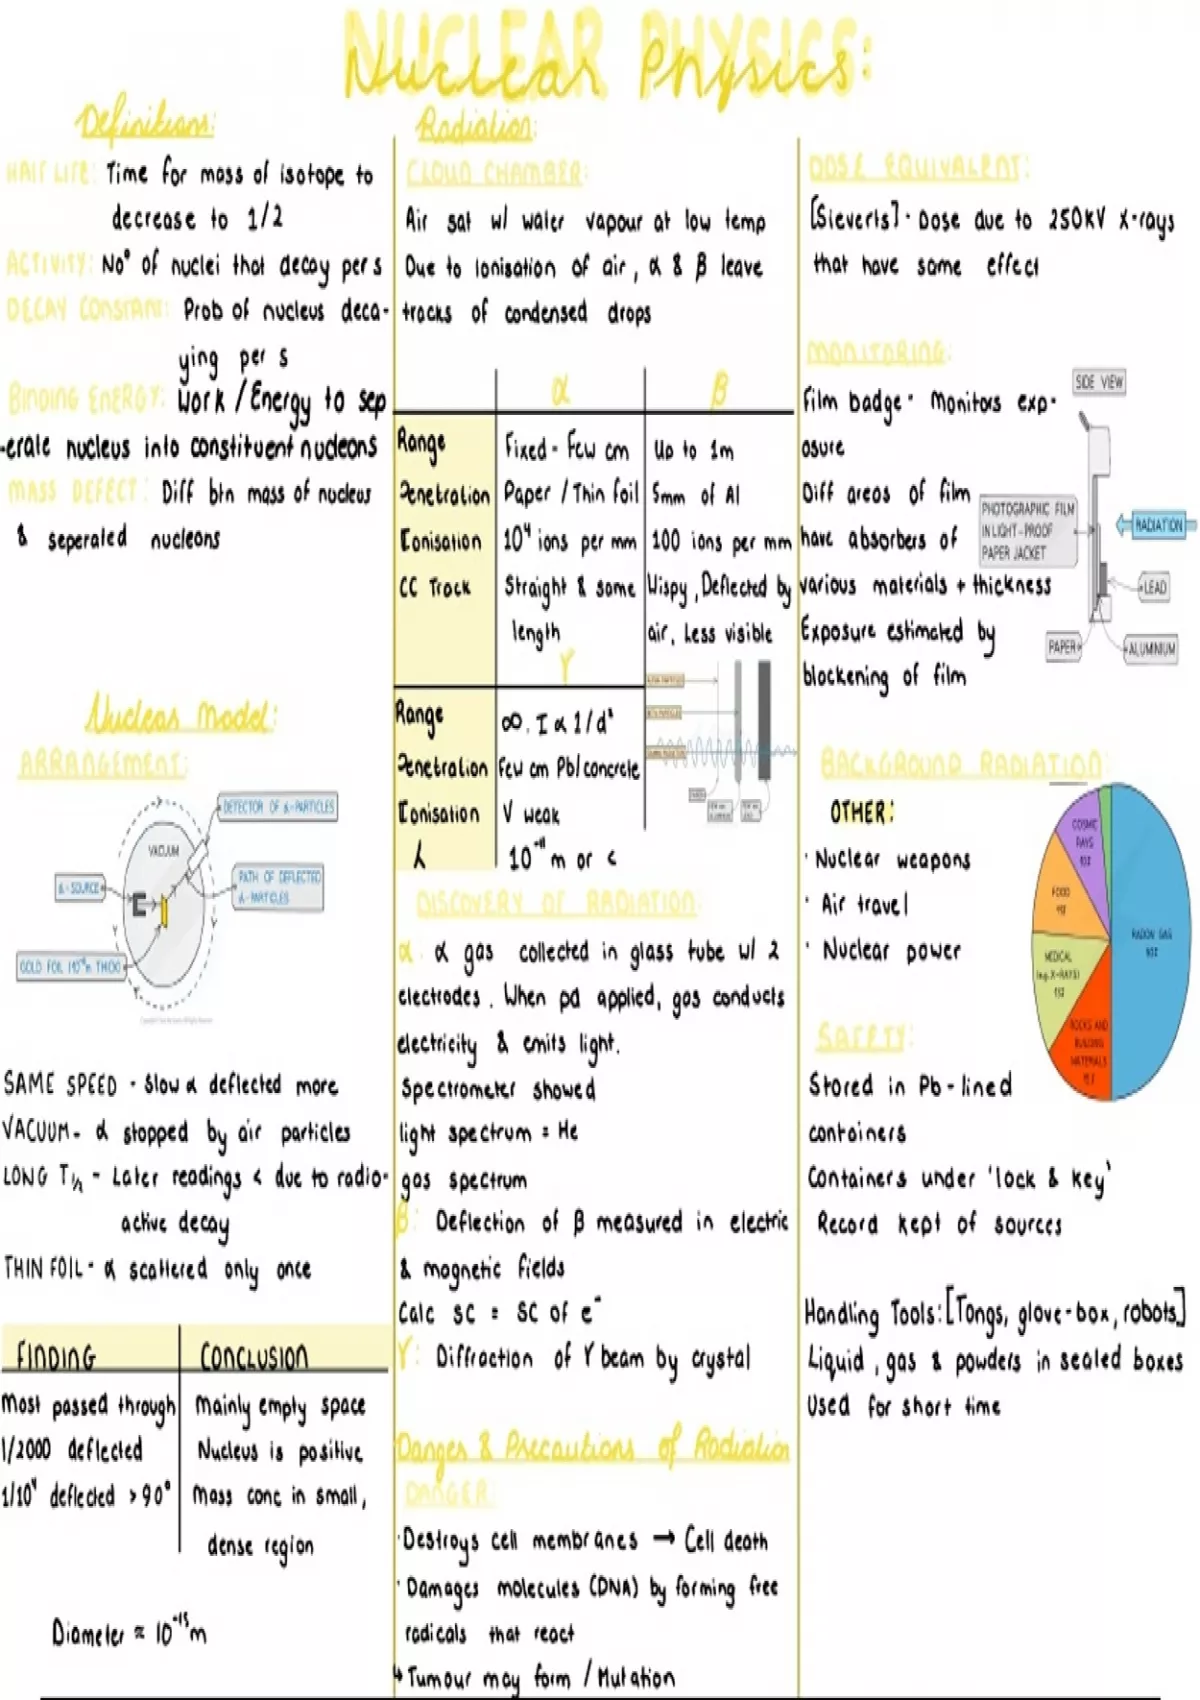 NUCLEAR PHYSICS:
Nuclear Physics:
Definitions:
HALF LIFE: Time for mass of isotope to
decrease to 1/2
ACTIVITY: No° of nuclei that decay per s
DECAY CONSTANT: Prob of nucleus deca-
ying per s
BINDING ENERGY: Work / Energy to sep
-erate nucleus into constituent nucleons
MASS DEFECT: Diff btn mass of nucleus
& seperated nucleons
Nuclear Model:
ARRANGEMENT:
DETECTOR OF α-PARTICLES
VACUUM
α-SOURCE
PATH OF DEFLECTED
α-PARTICLES
GOLD FOIL (10⁻⁶m THICK)
SAME SPEED - Slow α deflected more
VACUUM - α stopped by air particles
LONG T½ - Later readings < due to radio-
active decay
THIN FOIL - α scattered only once
FINDING CONCLUSION
Most passed through Mainly empty space
1/2000 deflected Nucleus is positive
1/10⁴ deflected >90° Mass conc in small,
dense region
Diameter ≈ 10⁻¹⁵m
Radiation:
CLOUD CHAMBER:
Air sat w/ water vapour at low temp
Due to Ionisation of air, α & β leave
tracks of condensed drops
α β
Range Fixed - Few cm Up to 1m
Penetration Paper / Thin foil 5mm of Al
Ionisation 10⁴ ions per mm 100 ions per mm
CC Track Straight & same Wispy, Deflected by
length air, Less visible
γ
Range ∞. I α 1/d²
Penetration Few cm Pb/concrete
Ionisation V weak
λ 10⁻¹¹ m or <
DISCOVERY OF RADIATION:
α: α gas collected in glass tube w/ 2
electrodes. When pd applied, gas conducts
electricity & emits light.
Spectrometer showed
light spectrum = He
gas spectrum
β: Deflection of β measured in electric
& magnetic fields
Calc SC = SC of e⁻
γ: Diffraction of γ beam by crystal
Danger & Precautions of Radiation
DANGER:
· Destroys cell membranes → Cell death
· Damages molecules (DNA) by forming free
radicals that react
↳ Tumour may form / Mutation
DOSE EQUIVALENT:
[Sieverts] - Dose due to 250kV X-rays
that have same effect
MONITORING:
SIDE VIEW
Film badge - Monitors exp-
osure
Diff areas of film
have absorbers of
various materials + thickness
Exposure estimated by
blackening of film
PHOTOGRAPHIC FILM
IN LIGHT-PROOF
PAPER JACKET
RADIATION
LEAD
PAPER
ALUMINIUM
BACKGROUND RADIATION:
OTHER:
· Nuclear weapons
· Air travel
· Nuclear power
COSMIC
RAYS
FOOD
MEDICAL
(eg. X-RAYS)
ROCKS AND
BUILDING
MATERIALS
RADON GAS
SAFETY:
Stored in Pb-lined
containers
Containers under 'lock & key'
Record kept of sources
Handling Tools: [Tongs, glove-box, robots]
Liquid, gas & powders in sealed boxes
Used for short time